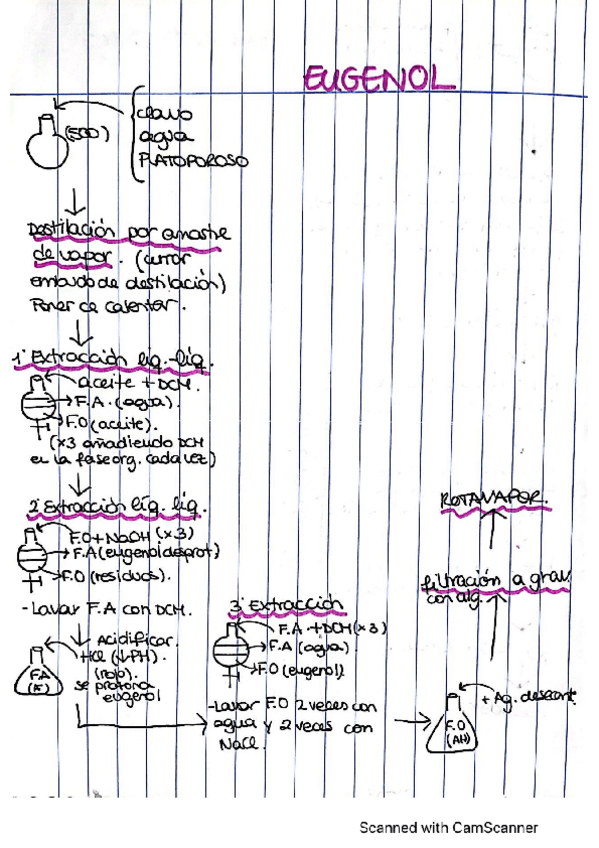 EUGENOL
(500)
clavo
agua
PLATOPOROSO
Destilación por arrastre
de vapor. (cerrar
embudo de destilación)
Poner a calentar.
1ª Extracción líq.-líq.
aceite + DCM.
F.A. (agua).
F.O (aceite).
(x3 añadiendo DCM
en la fase org. cada vez)
2ª Extracción líq. líq.
F.O + NaOH (x3)
F.A (eugenol desprot)
F.O (residuos).
- Lavar F.A con DCM.
Acidificar.
HCl (↓PH).
(rojo).
se protona
eugenol
F.A
3ª Extracción
F.A + DCM (x3)
F.A (agua).
F.O (eugenol)
- Lavar F.O 2 veces con
agua y 2 veces con
NaCl.
+ Ag. desecant.
F.O
(AH)
filtración a grav.
con alg.
ROTAVAPOR.
Scanned with CamScanner